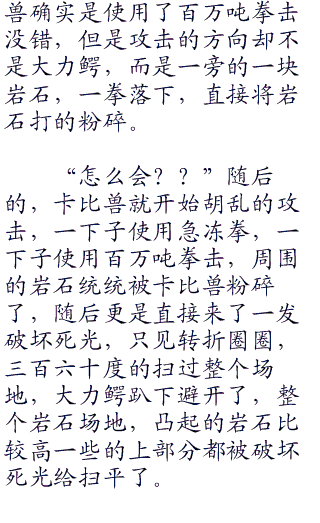 兽确实是使用了百万吨拳击
没错，但是攻击的方向却不
是大力鳄，而是一旁的一块
岩石，一拳落下，直接将岩
石打的粉碎。
“怎么会？？”随后
的，卡比兽就开始胡乱的攻
击，一下子使用急冻拳，一
下子使用百万吨拳击，周围
的岩石统统被卡比兽粉碎
了，随后更是直接来了一发
破坏死光，只见转折圈圈，
三百六十度的扫过整个场
地，大力鳄趴下避开了，整
个岩石场地，凸起的岩石比
较高一些的上部分都被破坏
死光给扫平了。